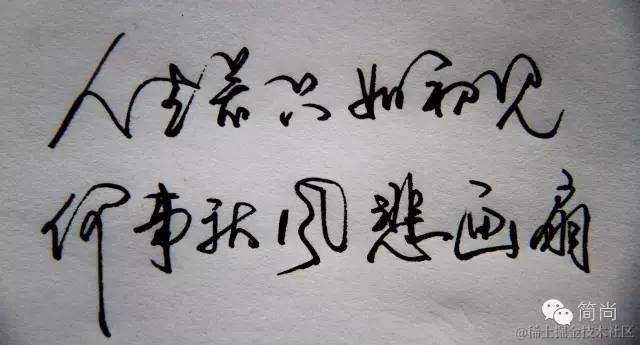 人生若只如初见
何事秋风悲画扇
简尚
@稀土掘金技术社区